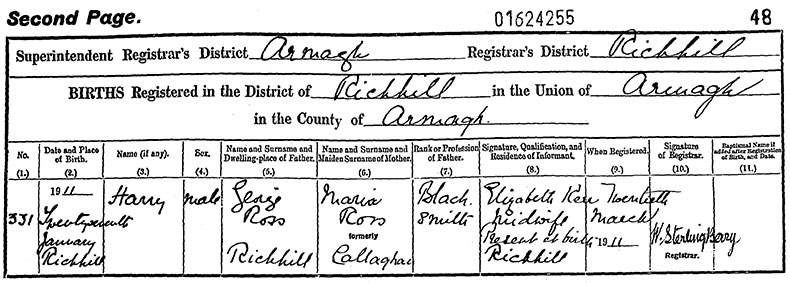 Second Page. 01624255 48
Superintendent Registrar's District Armagh Registrar's District Richhill
BIRTHS Registered in the District of Richhill in the Union of Armagh
in the County of Armagh.
No. Date and Place of Birth. Name (if any). Sex. Name and Surname and Dwelling-place of Father. Name and Surname and Maiden Surname of Mother. Rank or Profession of Father. Signature, Qualification, and Residence of Informant. When Registered. Signature of Registrar. Baptismal Name if added after Registration of Birth, and Date.
(1.) (2.) (3.) (4.) (5.) (6.) (7.) (8.) (9.) (10.) (11.)
1911 Harry male George Maria Black Elizabeth Kerr Twentieth
331 Twentyseventh Ross Ross Smith Midwife March
January formerly Present at birth 1911 W. Sterling Berry
Richhill Richhill Callaghan Richhill Registrar.